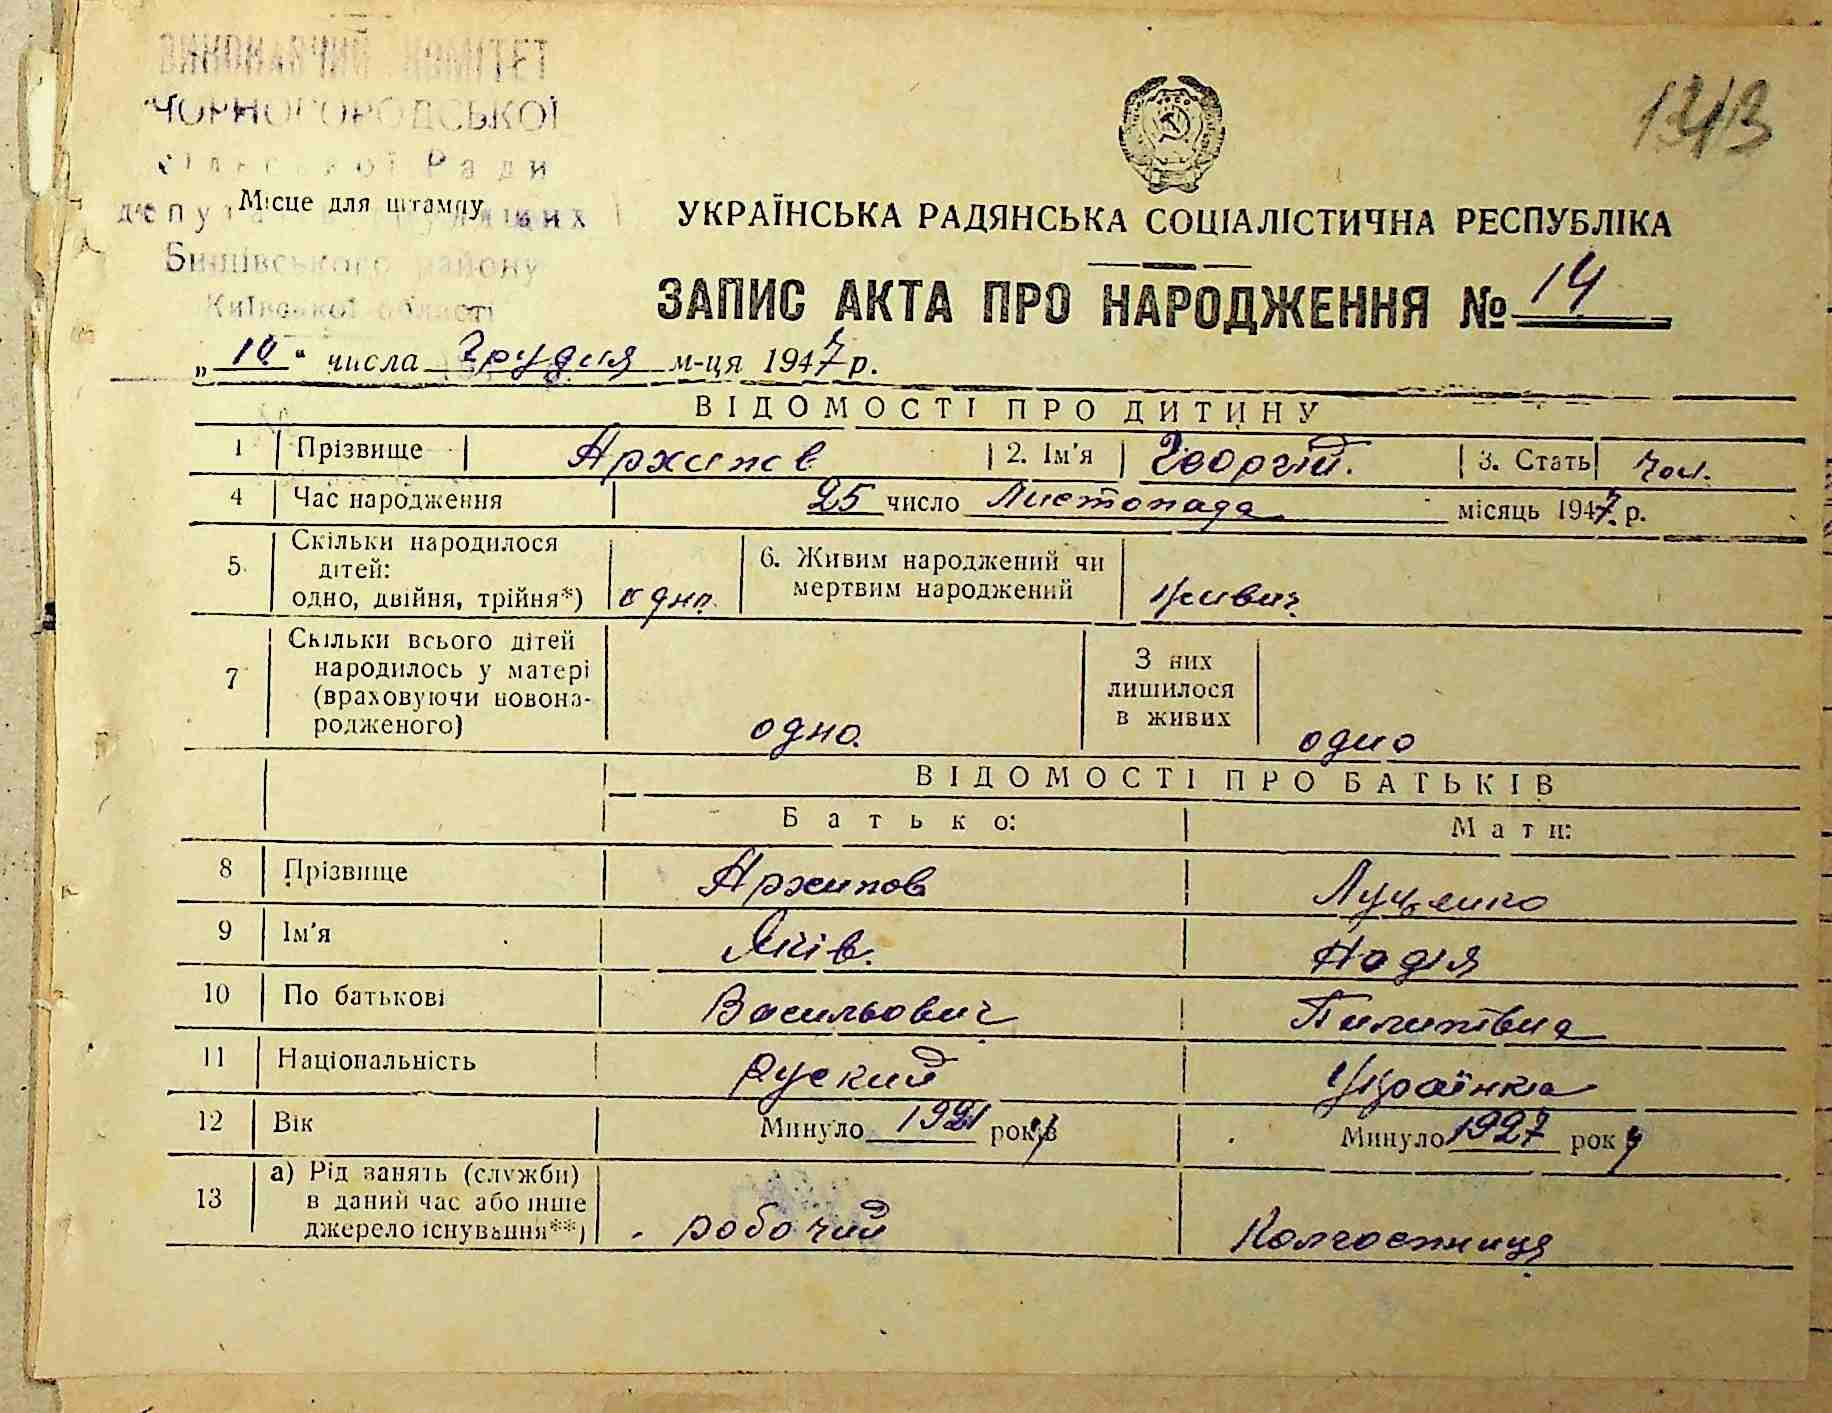 ВИКОНАВЧИЙ КОМІТЕТ
ЧОРНОГОРОДСЬКОЇ
сільської Ради
депутатів трудящих
Бишівського району
Київської області
Місце для штампу
УКРАЇНСЬКА РАДЯНСЬКА СОЦІАЛІСТИЧНА РЕСПУБЛІКА
ЗАПИС АКТА ПРО НАРОДЖЕННЯ № 14
„10“ числа Грудня м-ця 1947 р.
ВІДОМОСТІ ПРО ДИТИНУ
1 Прізвище Архипов 2. Ім'я Георгій. 3. Стать чол.
4 Час народження 25 число Листопада місяць 1947 р.
5 Скільки народилося дітей: одно, двійня, трійня*) одно. 6. Живим народжений чи мертвим народжений живим.
7 Скільки всього дітей народилось у матері (враховуючи новонародженого) одно. З них лишилося в живих одно
ВІДОМОСТІ ПРО БАТЬКІВ
Батько: Мати:
8 Прізвище Архипов Луценко
9 Ім'я Яків. Надія
10 По батькові Васильович Пилипівна
11 Національність руский Українка
12 Вік Минуло 1921 року Минуло 1927 року
13 а) Рід занять (служби) в даний час або інше джерело існування**) робочий Колгоспниця